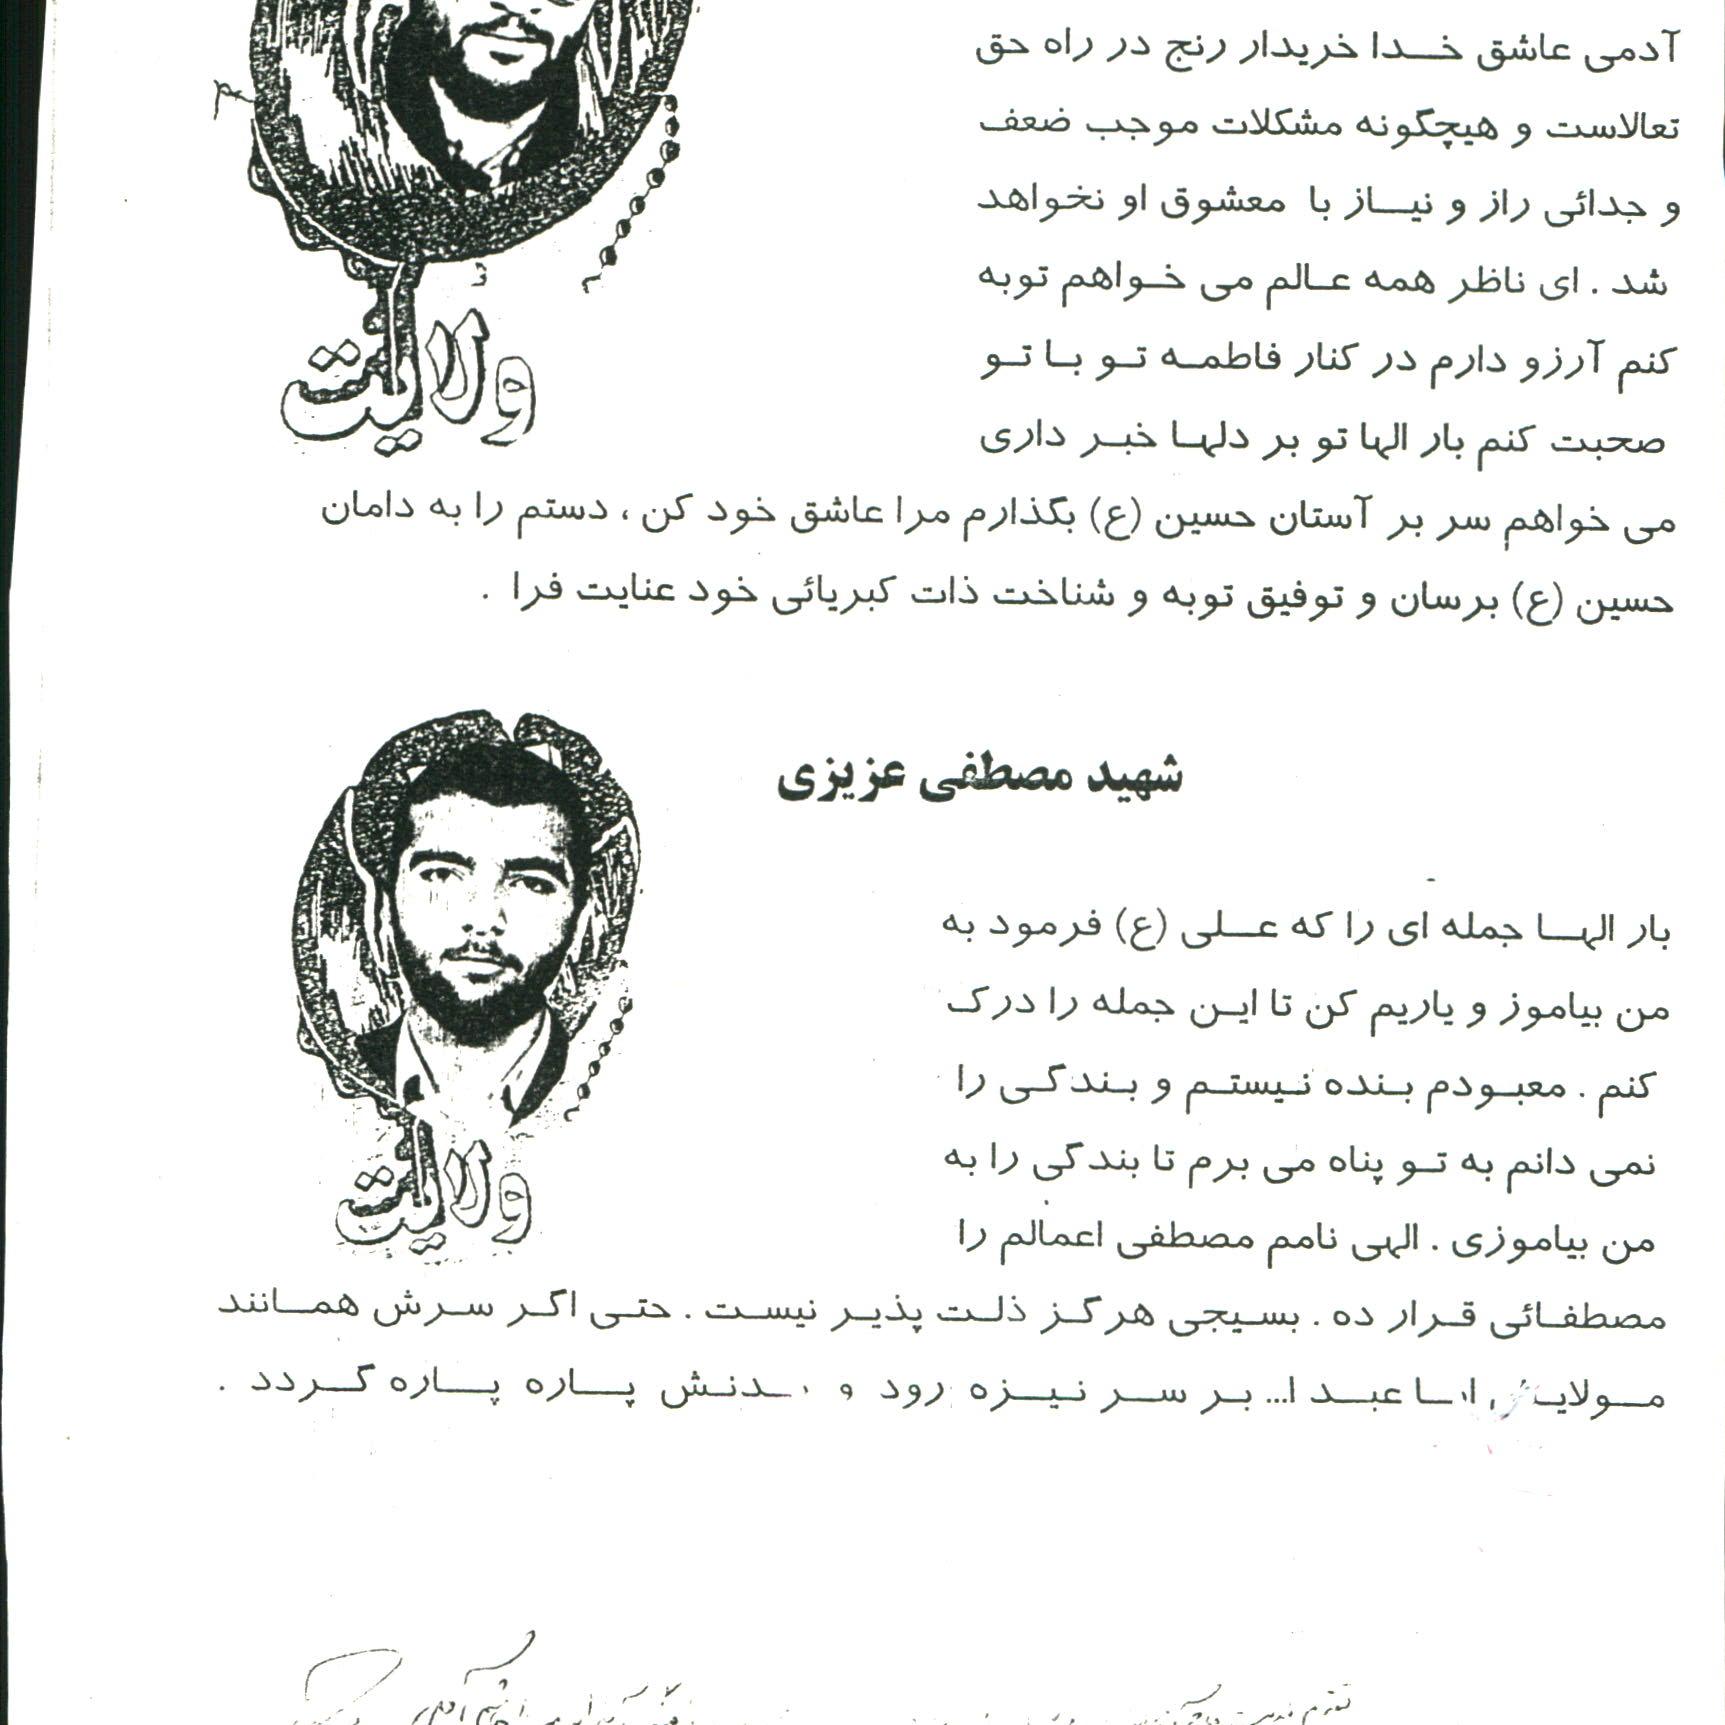 آدمی عاشق خدا خریدار رنج در راه حق
تعالاست و هیچگونه مشکلات موجب ضعف
و جدائی راز و نیاز با معشوق او نخواهد
شد . ای ناظر همه عالم می خواهم توبه
کنم آرزو دارم در کنار فاطمه تو با تو
صحبت کنم بار الها تو بر دلها خبر داری
می خواهم سر بر آستان حسین (ع) بگذارم مرا عاشق خود کن ، دستم را به دامان
حسین (ع) برسان و توفیق توبه و شناخت ذات کبریائی خود عنایت فرا .
ولایت
شهید مصطفی عزیزی
بار الها جمله ای را که علی (ع) فرمود به
من بیاموز و یاریم کن تا این جمله را درک
کنم . معبودم بنده نیستم و بندگی را
نمی دانم به تو پناه می برم تا بندگی را به
من بیاموزی . الهی نامم مصطفی اعمالم را
مصطفائی قرار ده . بسیجی هرگز ذلت پذیر نیست . حتی اگر سرش همانند
عبد ا... بر سر نیزه رود و پاره پاره گردد .
ولایت